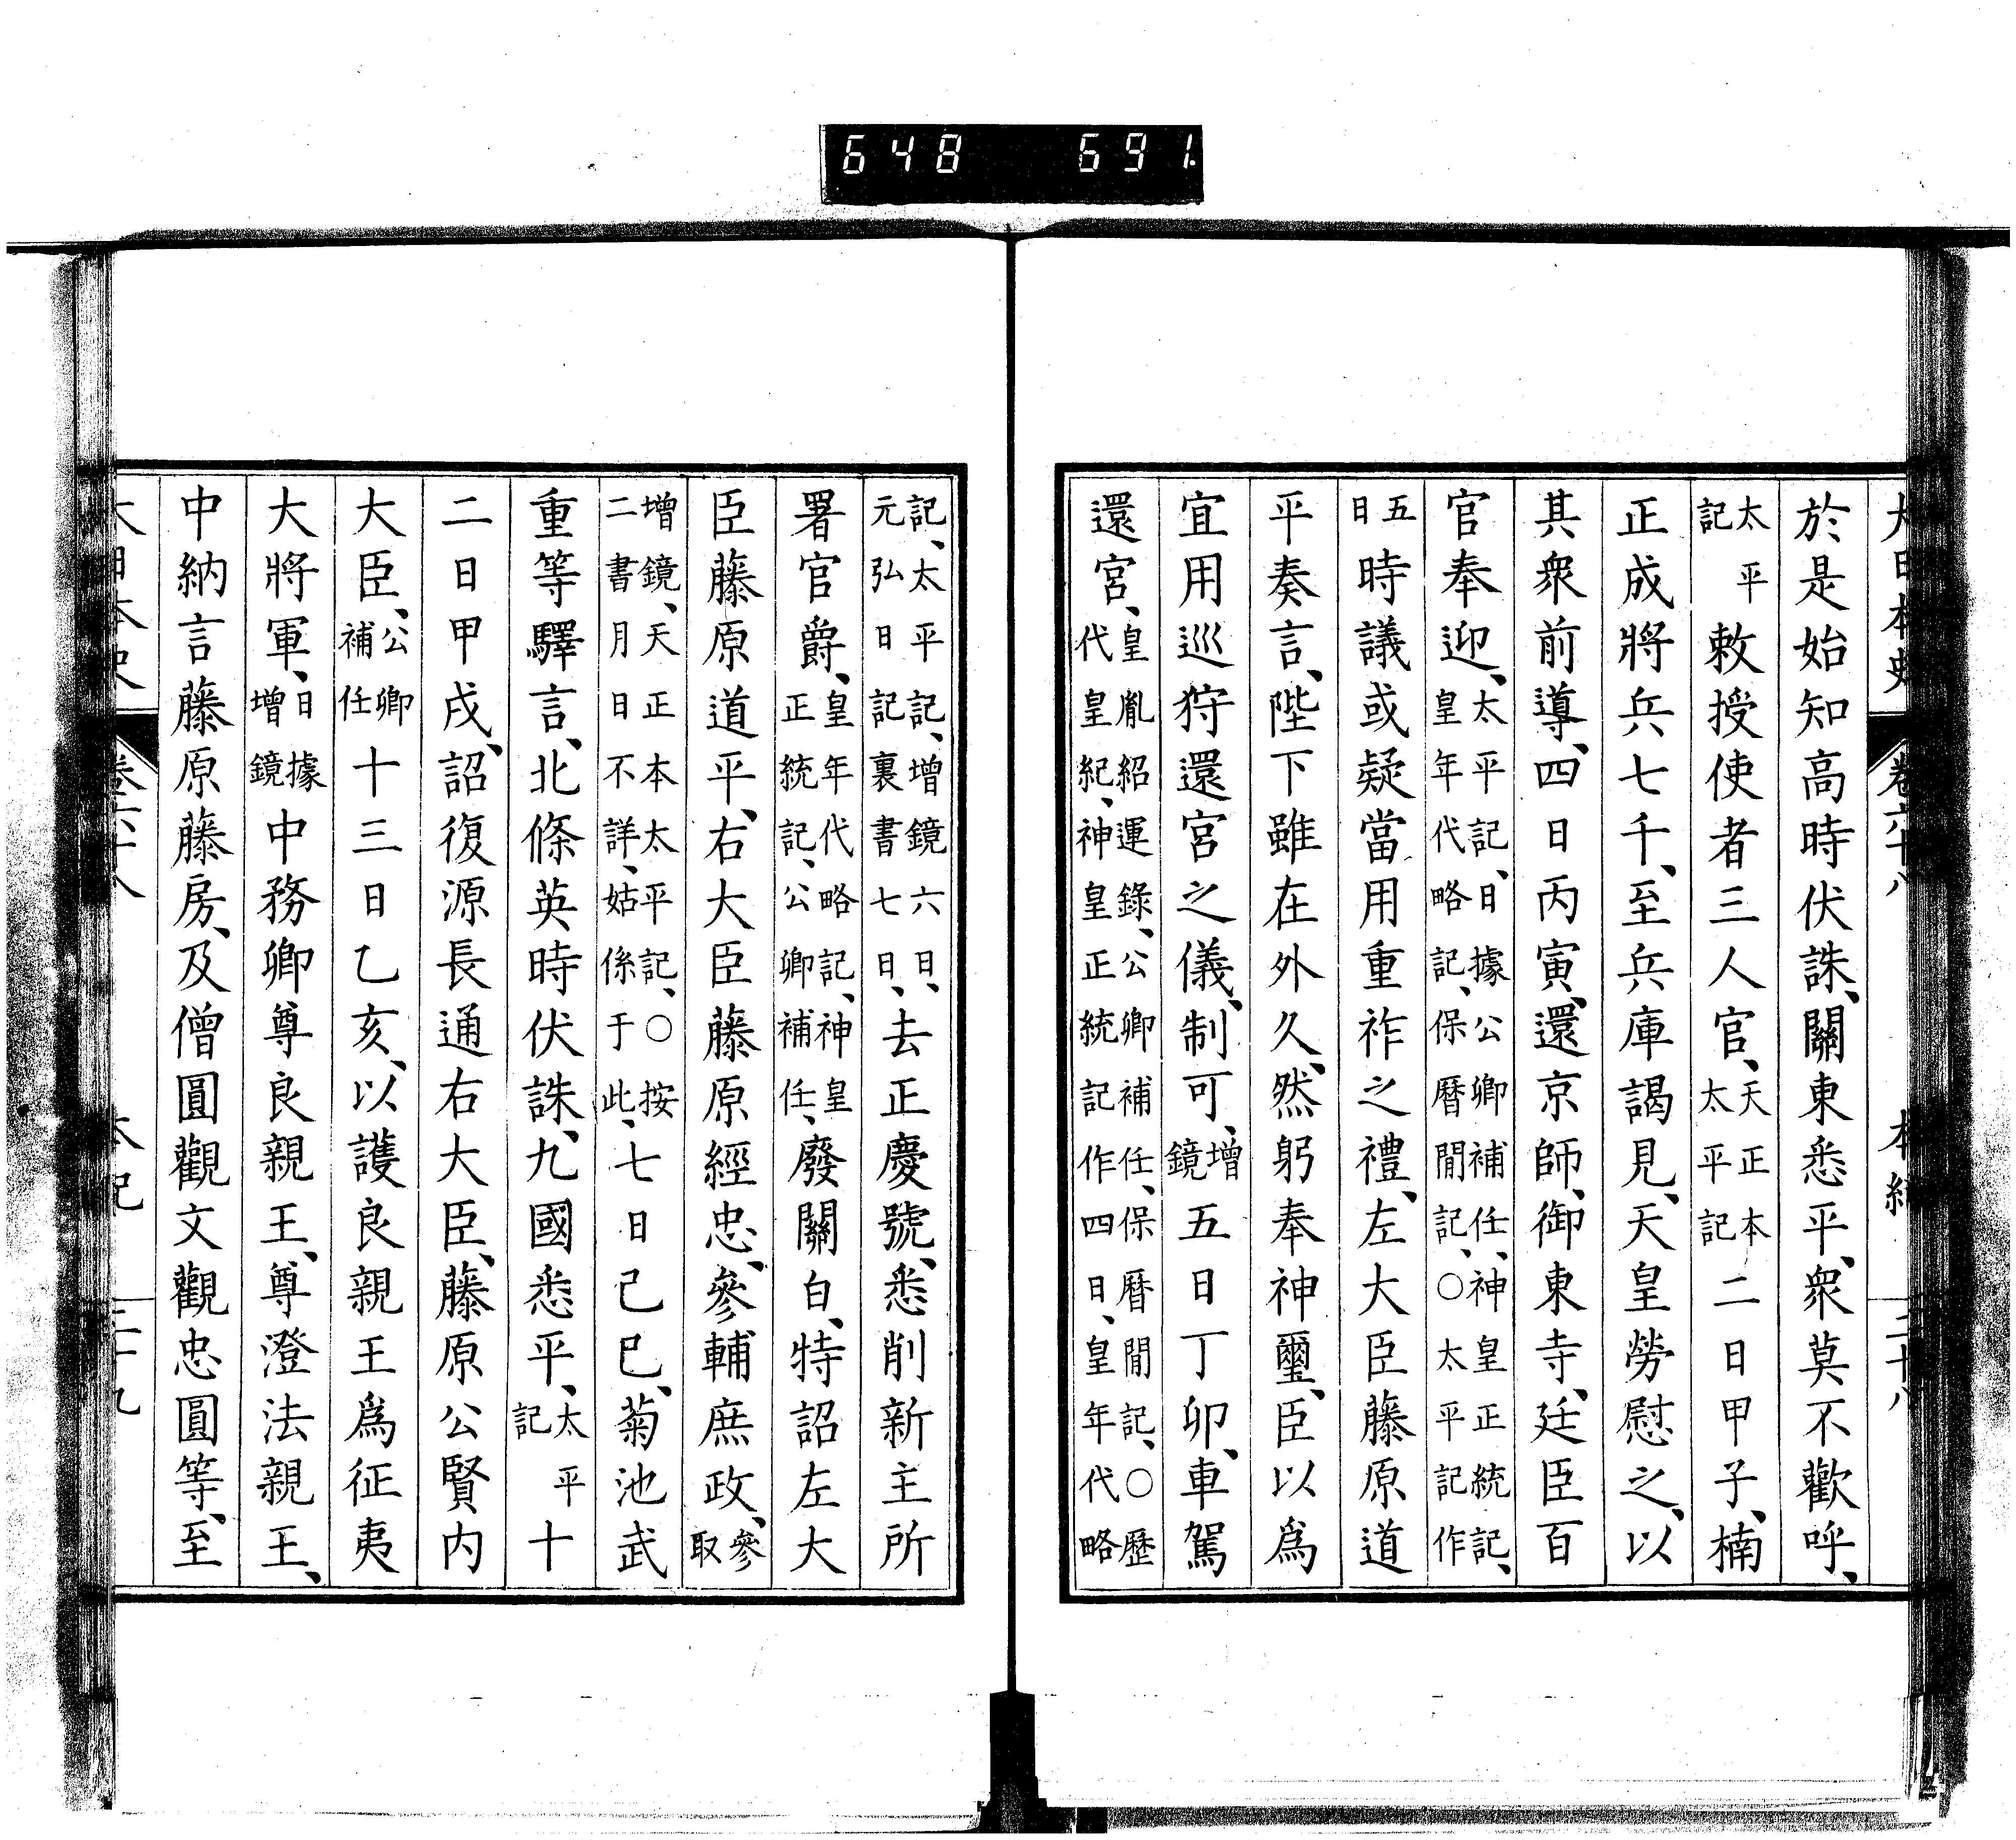 648 691.
大日本史 卷六十八 本紀 二十八
於是始知高時伏誅、關東悉平、衆莫不歡呼、
太平記敕授使者三人官、天正本太平記二日甲子、楠
正成將兵七千、至兵庫謁見、天皇勞慰之、以
其衆前導、四日丙寅、還京師、御東寺、廷臣百
官奉迎、太平記、日據公卿補任、神皇正統記、皇年代略記、保曆間記、○太平記作
五日時議或疑當用重祚之禮、左大臣藤原道
平奏言、陛下雖在外久、然躬奉神璽、臣以爲
宜用巡狩還宮之儀、制可、增鏡五日丁卯、車駕
還宮、皇胤紹運錄、公卿補任、保曆間記、○歷代皇紀、神皇正統記作四日、皇年代略
記、太平記、增鏡六日、元弘日記裏書七日、去正慶號、悉削新主所
署官爵、皇年代略記、神皇正統記、公卿補任、廢關白、特詔左大
臣藤原道平、右大臣藤原經忠、參輔庶政、參取
增鏡、天正本太平記、○按二書月日不詳、姑係于此、七日己巳、菊池武
重等驛言、北條英時伏誅、九國悉平、太平記十
二日甲戌、詔復源長通右大臣、藤原公賢内
大臣、公卿補任十三日乙亥、以護良親王爲征夷
大將軍、日據增鏡中務卿尊良親王、尊澄法親王、
中納言藤原藤房、及僧圓觀文觀忠圓等、至
大日本史 卷六十八 本紀 二十九